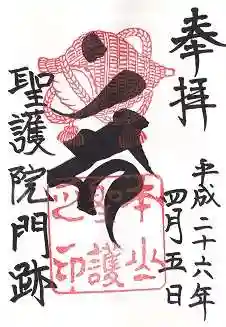 奉拝
平成二十六年
四月五日
聖護院門跡
本山
聖護
之印